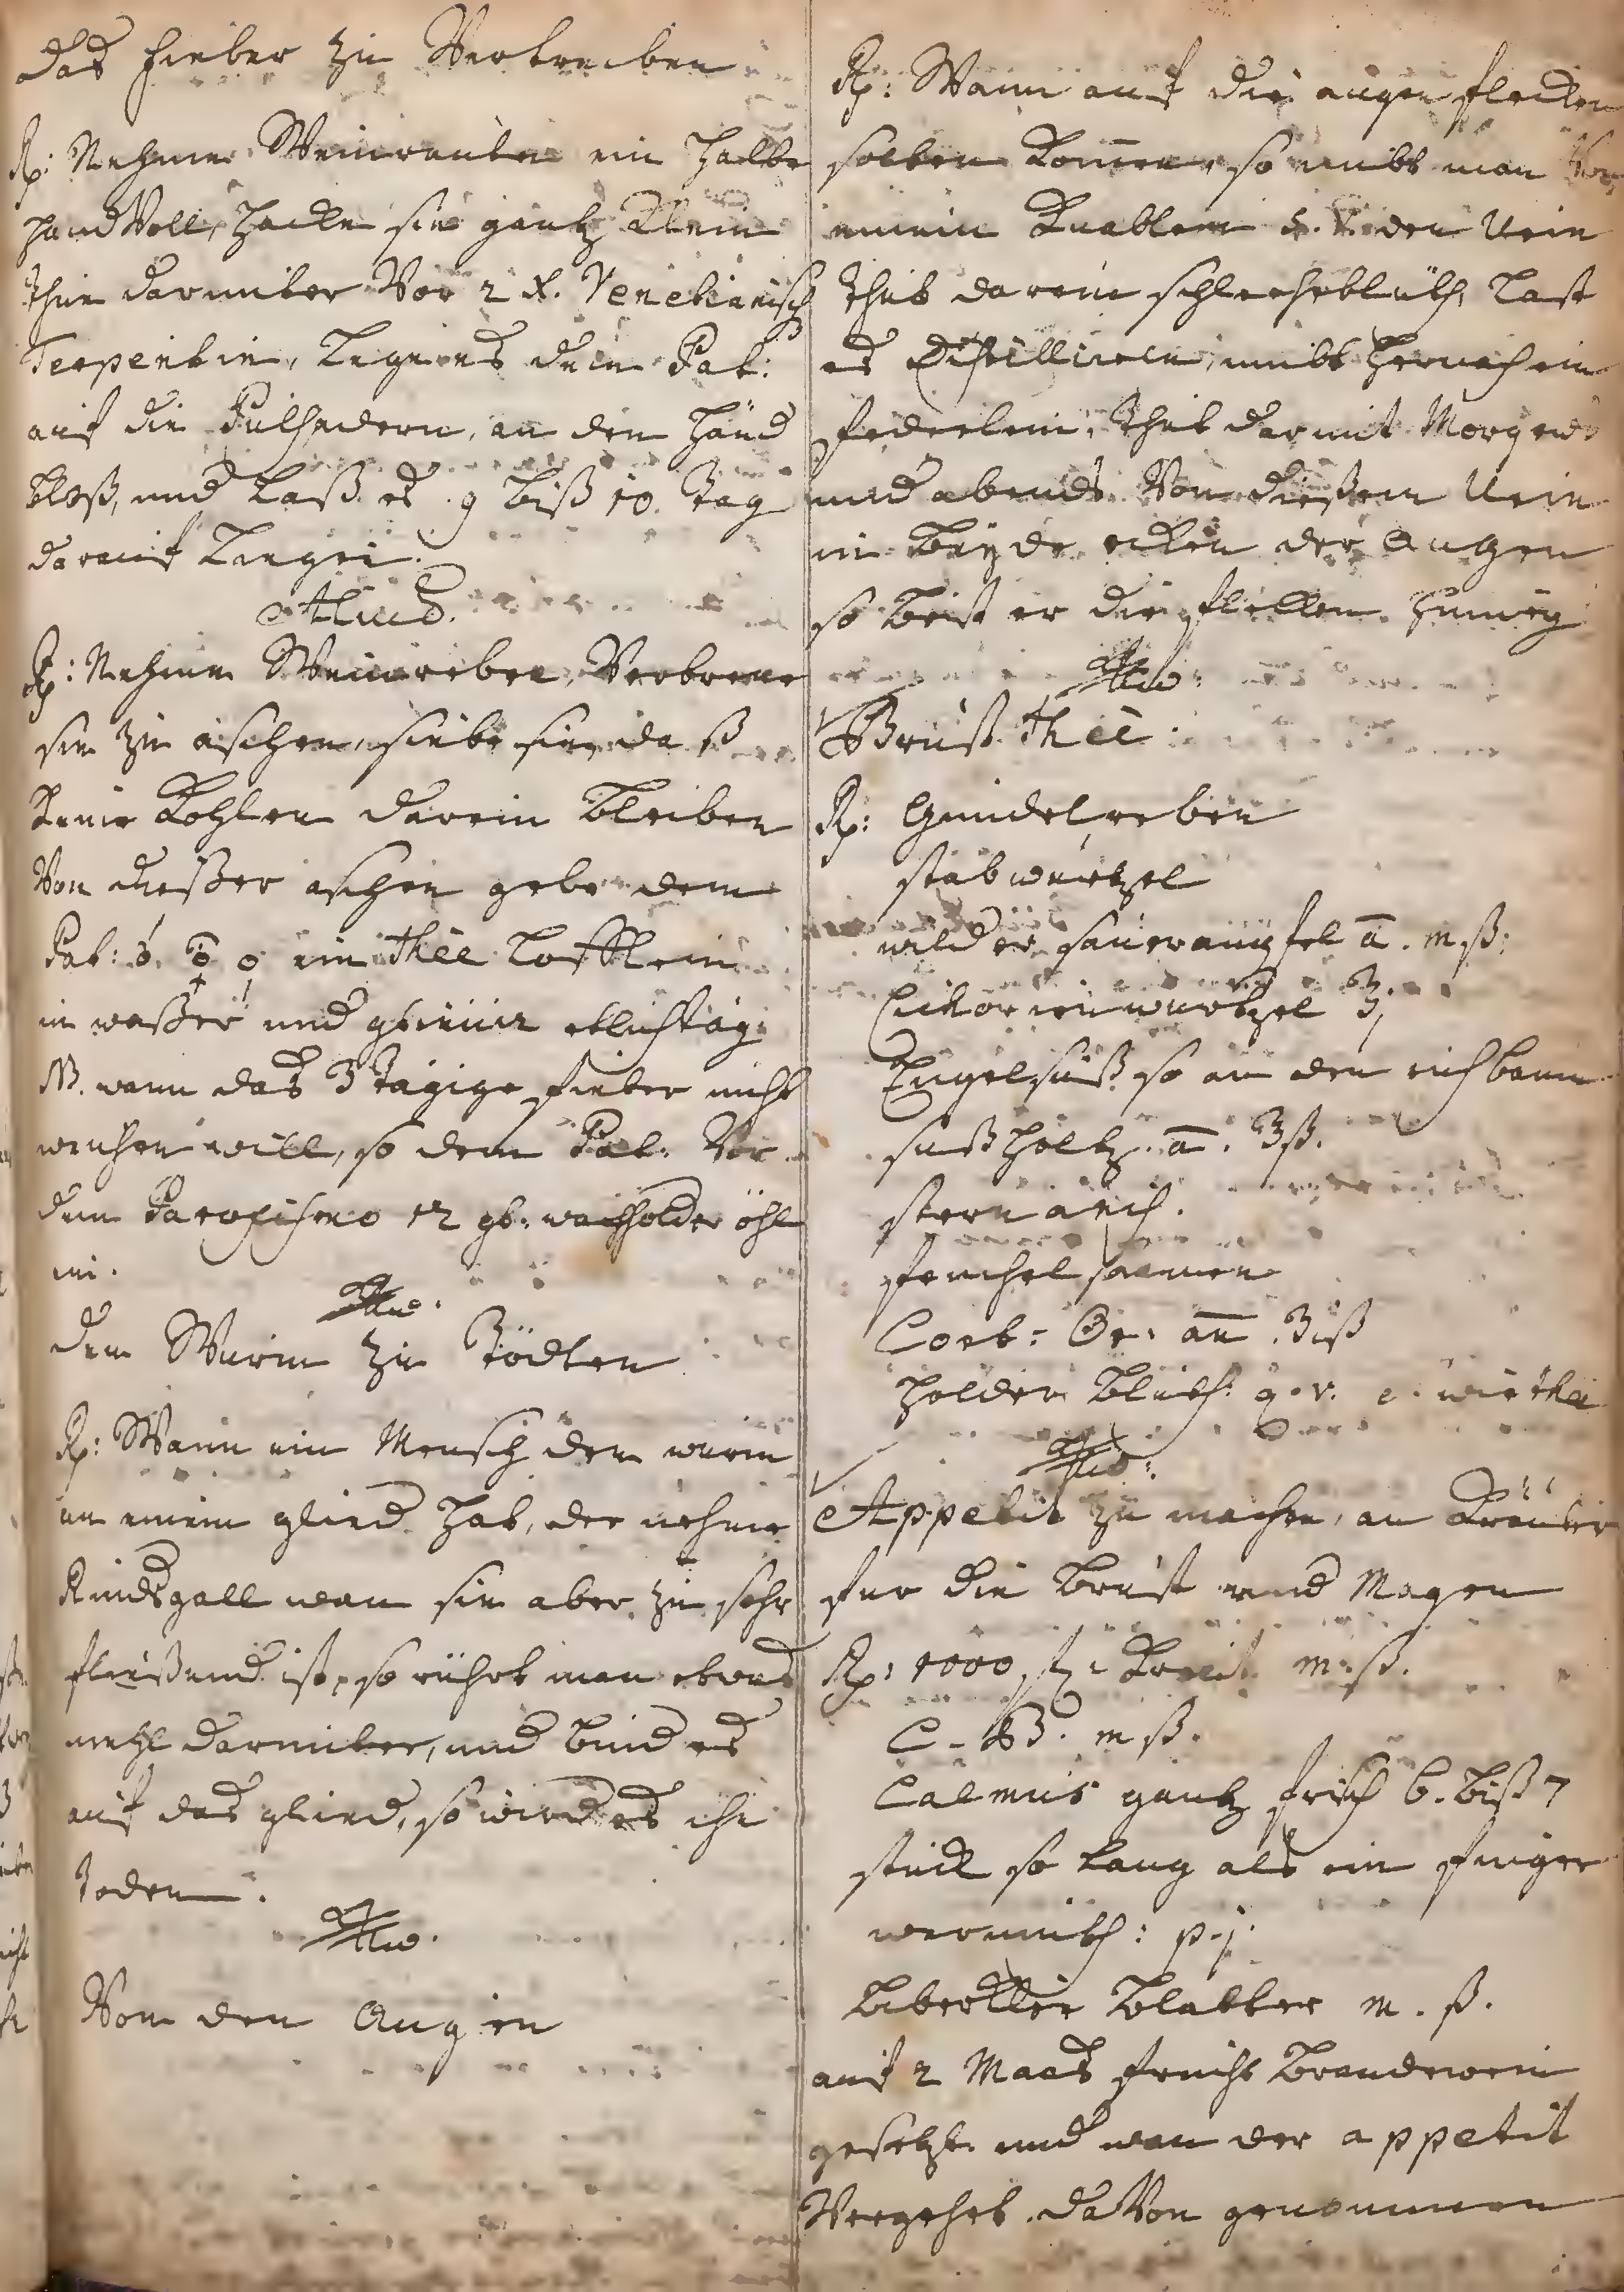 Das Fieber zu Vertreiben
Rp: Nehme Weinrauten ein halbe
handVoll, hacke sie gantz klein
thue darunter Vor 2 x. Venetianisch
Terpentin, Lege es dem Pat:
auf die Pulsadern, an den Händ
bloß, und Laß es 9 biß 10. Tag
darauf Liegen.
Aliud.
Rp: Nehme Weinreben, Verbrene
sie zu aschen, siebe sie, daß
keine Kohlen darein bleiben
Von dießer aschen gebe dem
Pat: ein thee Löfflein
in waßer und etlich tag
NB. wann das 3 tägige fieber nicht
weichen will, so dem Pat. Vor
dem Paroxismo 12 gt: wachholder öhl
ein.
Aliud.
Den Wurm zu Tödten
Rp: Wann ein Mensch den wurm
an einem glied hat, der nehme
Rindsgall wan sie aber zu sehr
fließend ist, so rührt man etwas
mehl darunter, und bind es
auf das glied, so wird es ihn
töden.
Aliud.
Von den Augen
Rp: Wann auf die augen flecken
solten komen, so nimbt man Von
einem Knablein s. v. den Urin
thut darein schleheblüth, Last
es distilliren, nimbt hernach ein
federlein, thut darmit Morgens
und abends Von dießem Urin
in beyde ecken der Augen
so beist er die flecken hinweg
Aliud:
Brust thee.
Rp: Gundelreben
stabwurtzel
wilder sauerampfel a. m ß.
Cichorien wurtzel ʒj
Engelsüß so an den eichbaum
süßholtz. a. ʒß.
stern anis.
fenchel saamen
Cort: Or: an ʒiß
holder blüth: q. v. wie thee
Aliud:
Appetit zu machen, an Kräuter
fur die brust und Magen
Rp: 1000 kraut m. ß.
C. B. m ß.
Calmus gantz frisch 6. biß 7
stück so lang als ein finger
wermuth: p. j.
blatter m. ß.
auf 2 Maas frucht brandewein
gesetzt und wan der appetit
Vergehet daVon genommen